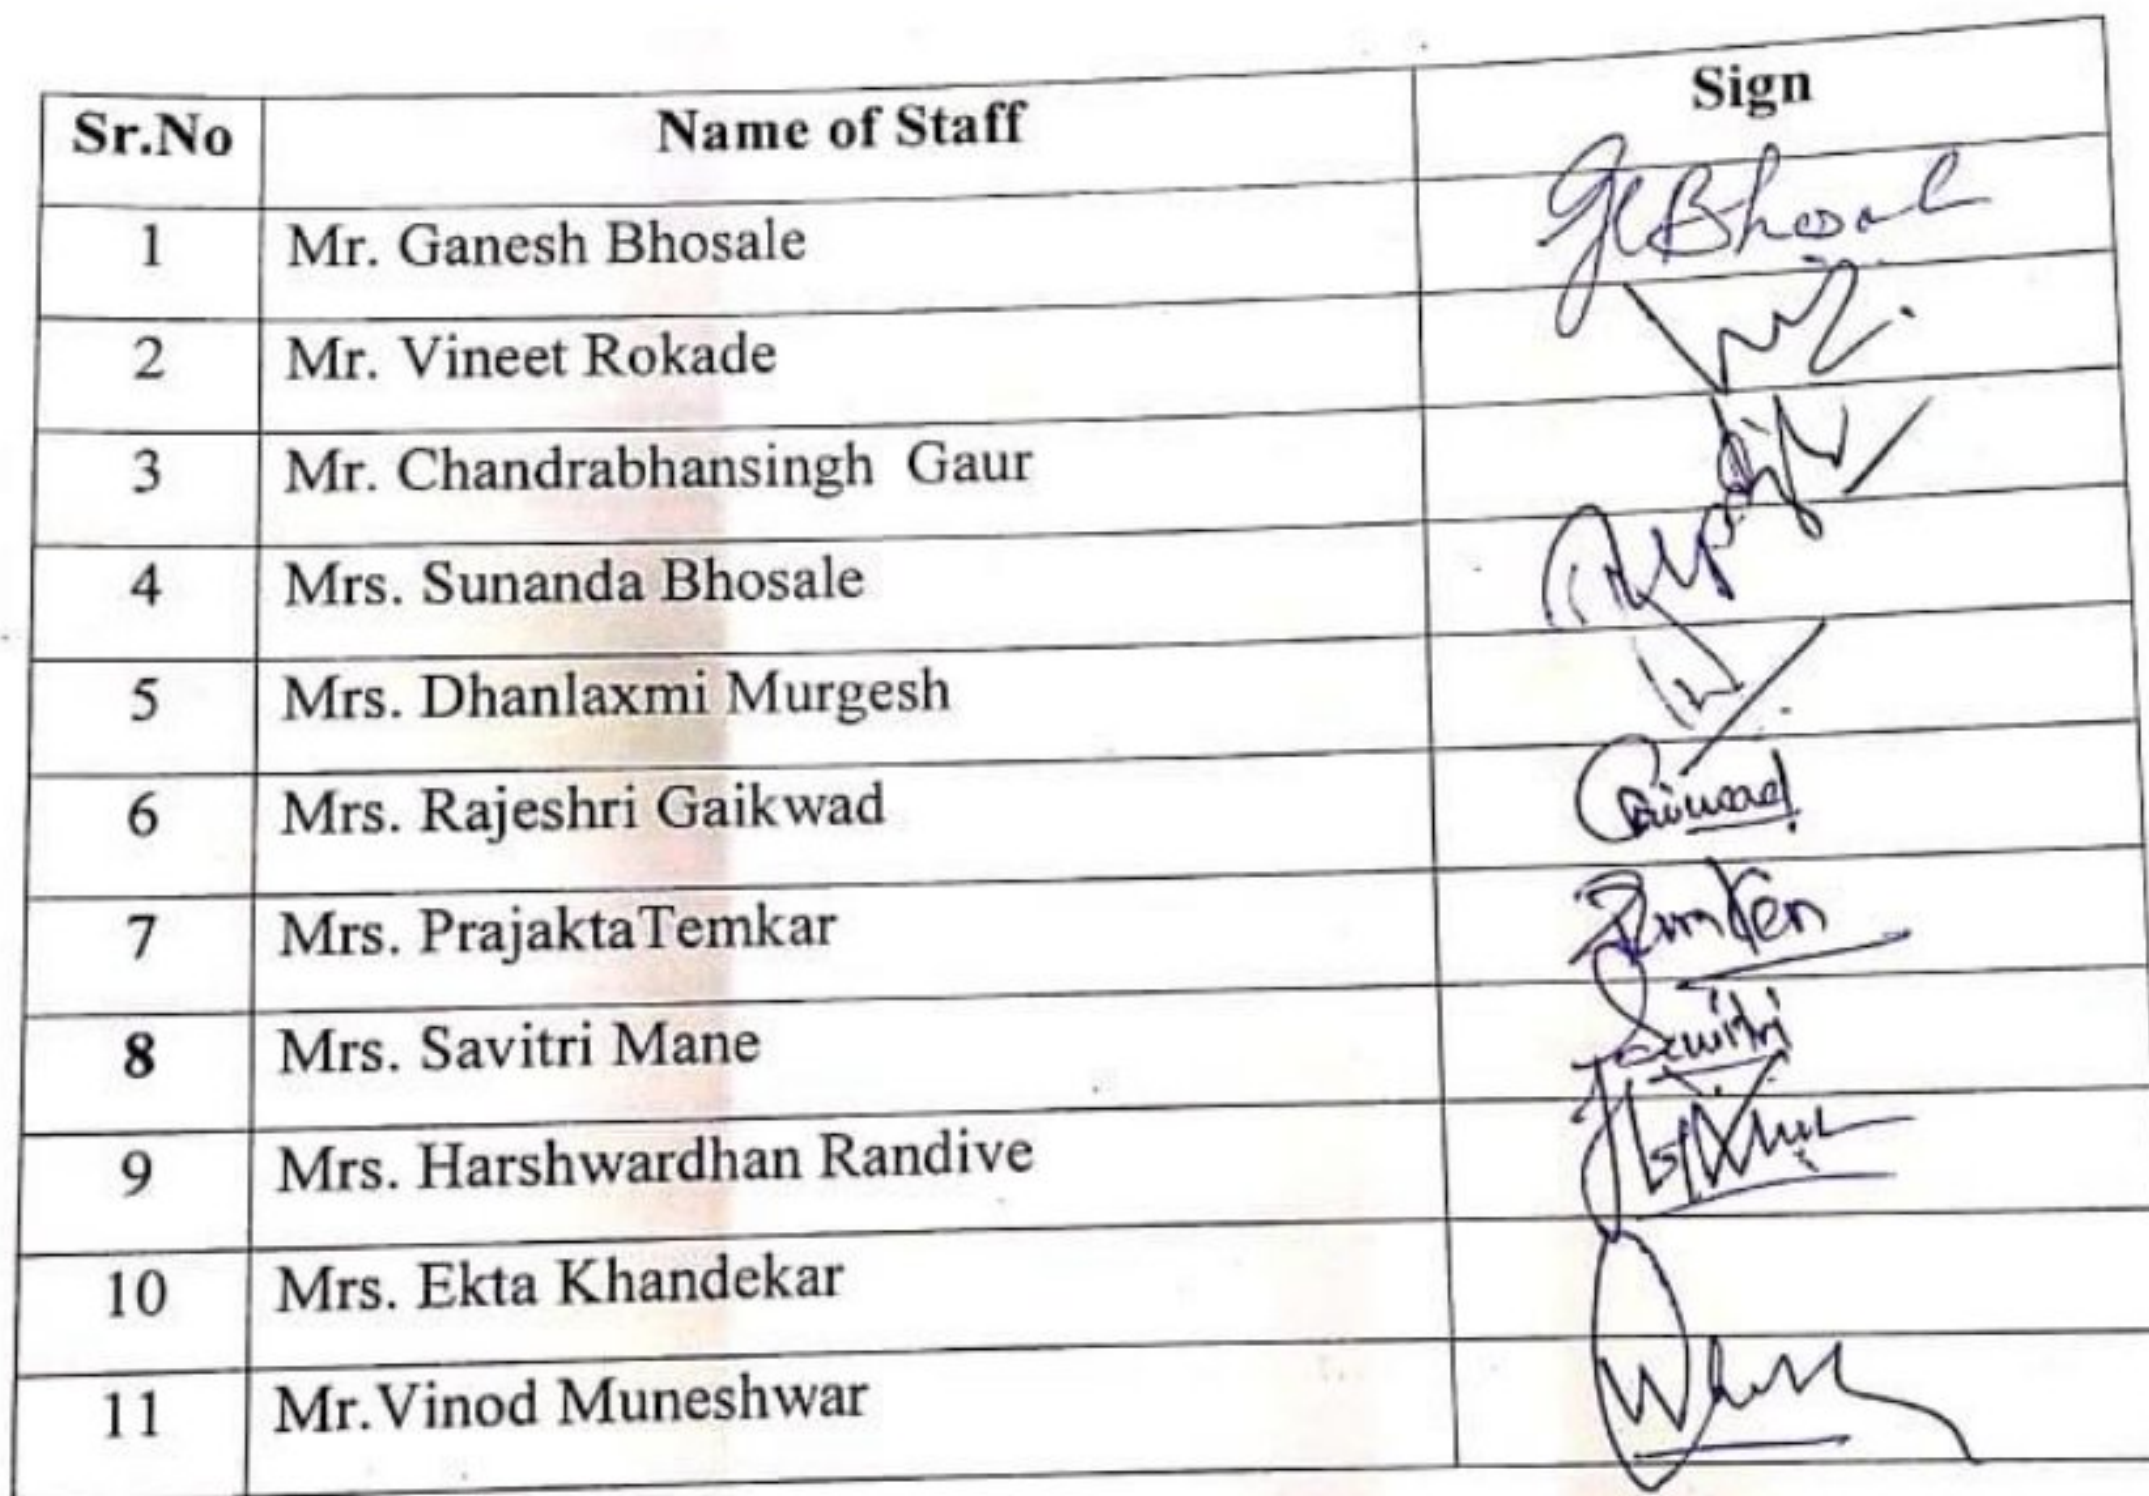 Sr.No Name of Staff Sign
1 Mr. Ganesh Bhosale
2 Mr. Vineet Rokade
3 Mr. Chandrabhansingh Gaur
4 Mrs. Sunanda Bhosale
5 Mrs. Dhanlaxmi Murgesh
6 Mrs. Rajeshri Gaikwad
7 Mrs. PrajaktaTemkar
8 Mrs. Savitri Mane Savitri
9 Mrs. Harshwardhan Randive
10 Mrs. Ekta Khandekar
11 Mr.Vinod Muneshwar